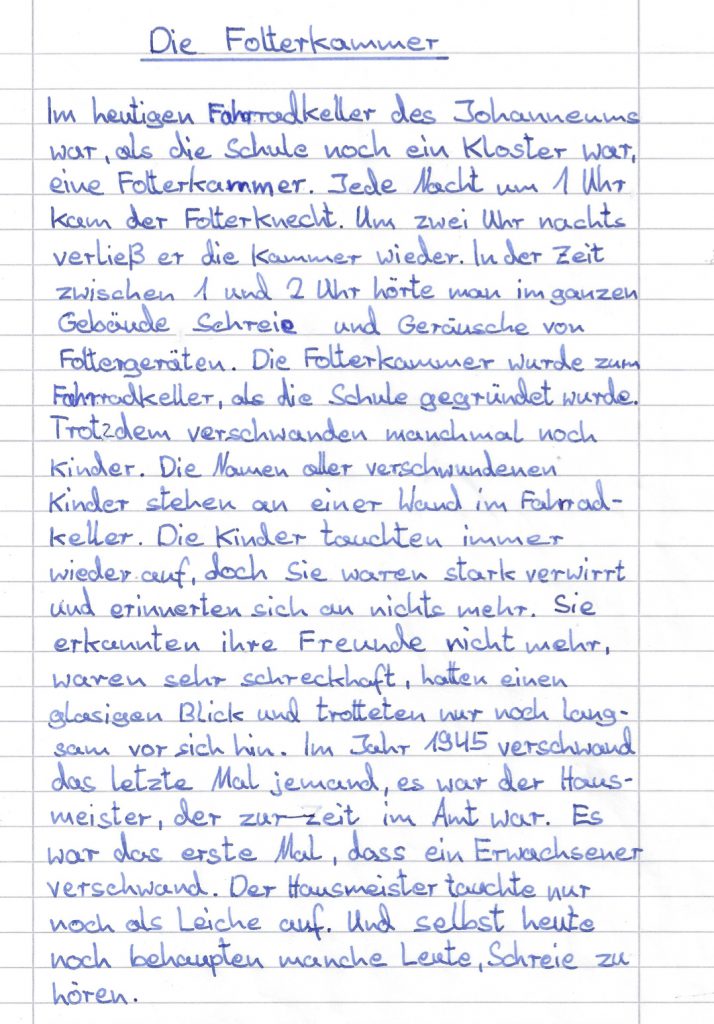 Die Folterkammer
Im heutigen Fahrradkeller des Johanneums
war, als die Schule noch ein Kloster war,
eine Folterkammer. Jede Nacht um 1 Uhr
kam der Folterknecht. Um zwei Uhr nachts
verließ er die Kammer wieder. In der Zeit
zwischen 1 und 2 Uhr hörte man im ganzen
Gebäude Schreie und Geräusche von
Foltergeräten. Die Folterkammer wurde zum
Fahrradkeller, als die Schule gegründet wurde.
Trotzdem verschwanden manchmal noch
Kinder. Die Namen aller verschwundenen
Kinder stehen an einer Wand im Fahrrad-
keller. Die Kinder tauchten immer
wieder auf, doch Sie waren stark verwirrt
und erinnerten sich an nichts mehr. Sie
erkannten ihre Freunde nicht mehr,
waren sehr schreckhaft, hatten einen
glasigen Blick und trotteten nur noch lang-
sam vor sich hin. Im Jahr 1945 verschwand
das letzte Mal jemand, es war der Haus-
meister, der zur Zeit im Amt war. Es
war das erste Mal, dass ein Erwachsener
verschwand. Der Hausmeister tauchte nur
noch als Leiche auf. Und selbst heute
noch behaupten manche Leute, Schreie zu
hören.